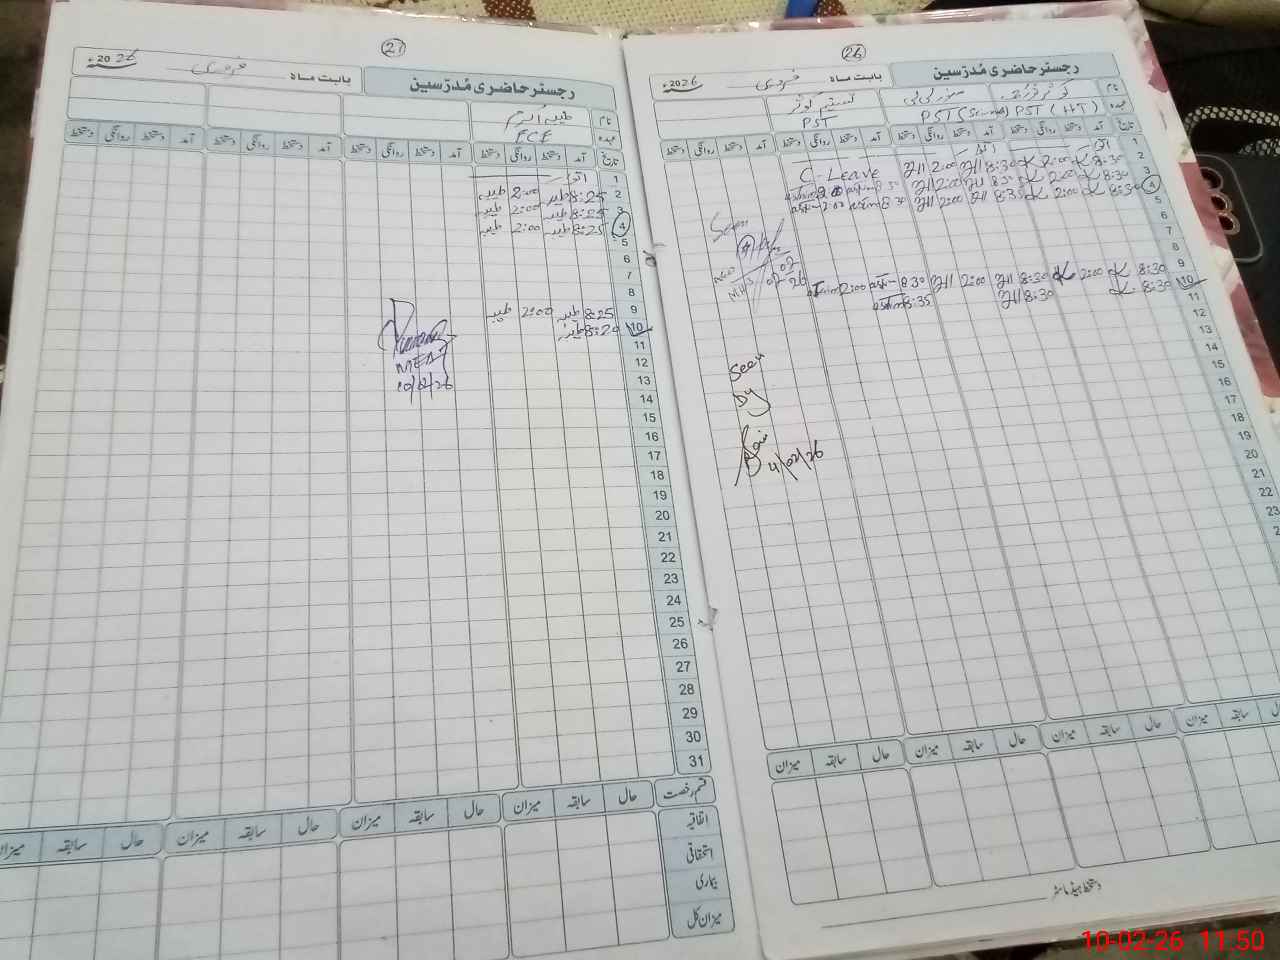 26
رجسٹر حاضری مُدرّسین
بابت ماہ فروری 2026ء
نام
عہدہ PST (HT) PST
تاریخ آمد دستخط روانگی دستخط آمد دستخط روانگی دستخط آمد دستخط روانگی دستخط آمد دستخط روانگی دستخط
1
2 8:30 2:00 8:30 2:00 C-Leave
3 8:30 2:00 8:30 2:00 8:30
4 8:30 2:00 8:35 2:00 8:30 2:00
5
6
7
8
9 8:30 2:00 8:30 2:00 8:30 2:00
10 8:30 8:30 8:35
11
12
13
14
15
16
17
18
19
20
21
22
23
Seen
02-02-26
Seen
by
4/02/26
حال سابقہ میزان حال سابقہ میزان حال سابقہ میزان سابقہ میزان
دستخط ہیڈ ماسٹر
27
رجسٹر حاضری مُدرّسین
بابت ماہ فروری 2026ء
نام
عہدہ ECE
تاریخ آمد دستخط روانگی دستخط آمد دستخط روانگی دستخط آمد دستخط روانگی دستخط آمد دستخط روانگی دستخط
1 اتوار
2 8:25 طیبہ 2:00 طیبہ
3 8:25 طیبہ 2:00 طیبہ
4 8:25 طیبہ 2:00 طیبہ
5
6
7
8
9 8:25 طیبہ 2:00 طیبہ
10 8:20 طیبہ
11
12
13
14
15
16
17
18
19
20
21
22
23
24
25
26
27
28
29
30
31
MEA
10/02/26
قسم رخصت حال سابقہ میزان حال سابقہ میزان حال سابقہ میزان حال سابقہ میزان
اتفاقیہ
استحقاقی
بیماری
میزان کل
10-02-26 11:50